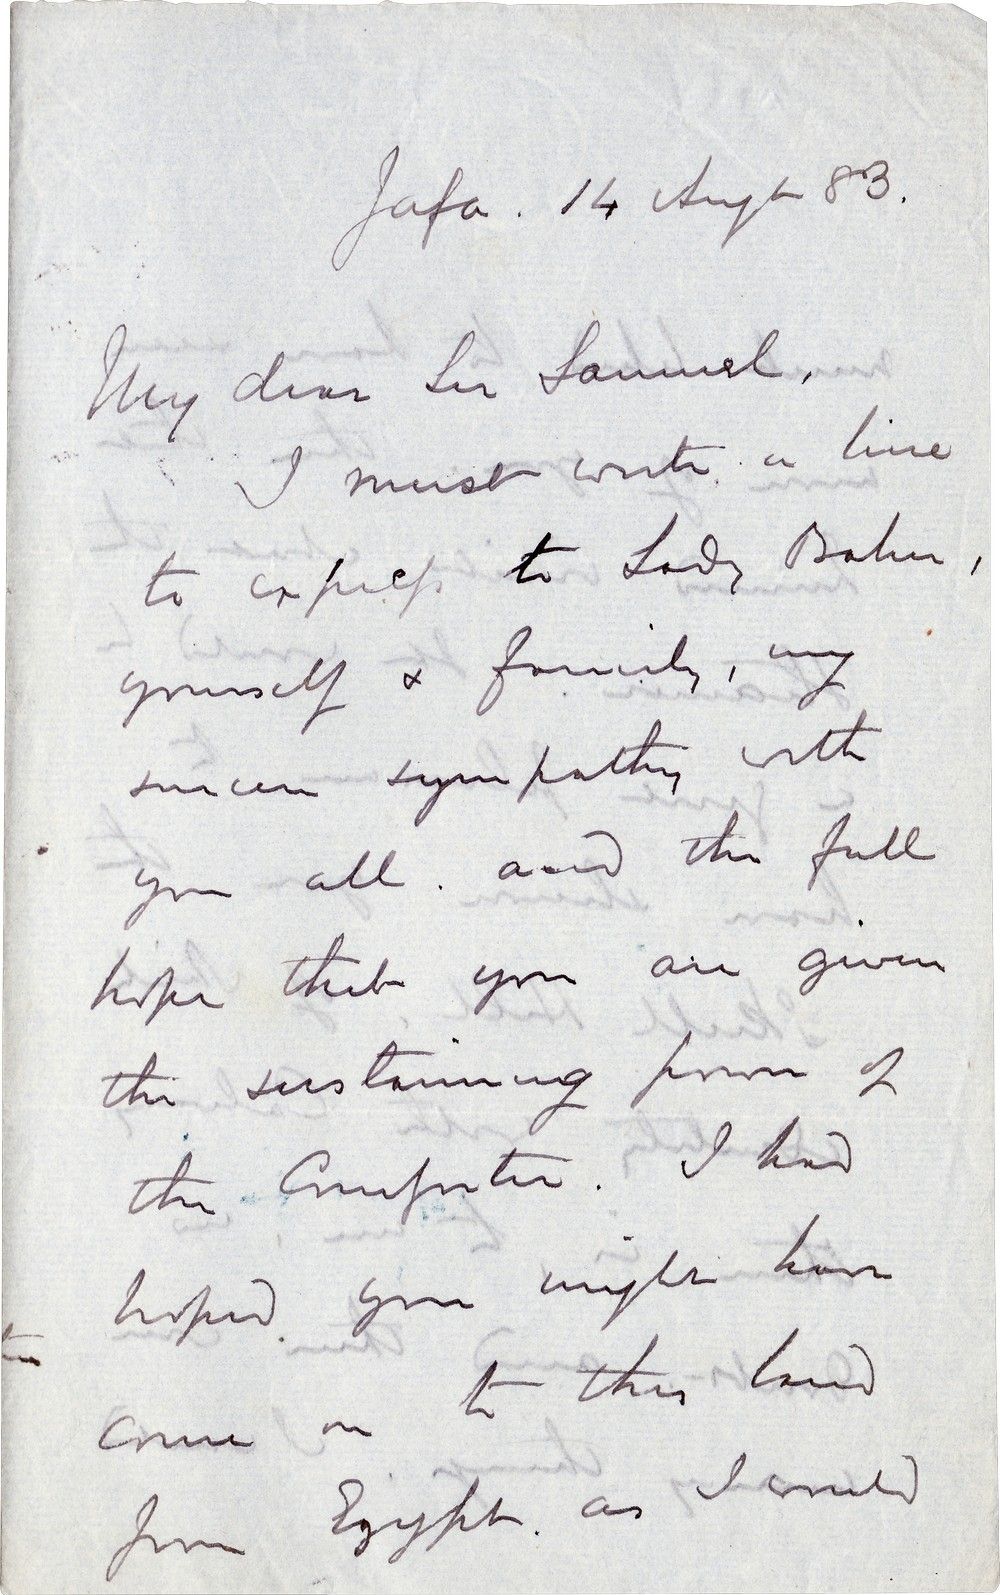 Jafa. 14 Augt 83.
My dear Sir Samuel,
I must write a line
to express to Lady Baker,
yourself & family, my
sincere sympathy with
you all. and the full
hope that you are given
the sustaining power of
the Comforter. I had
hoped you might have
come on to this land
from Egypt. as I would